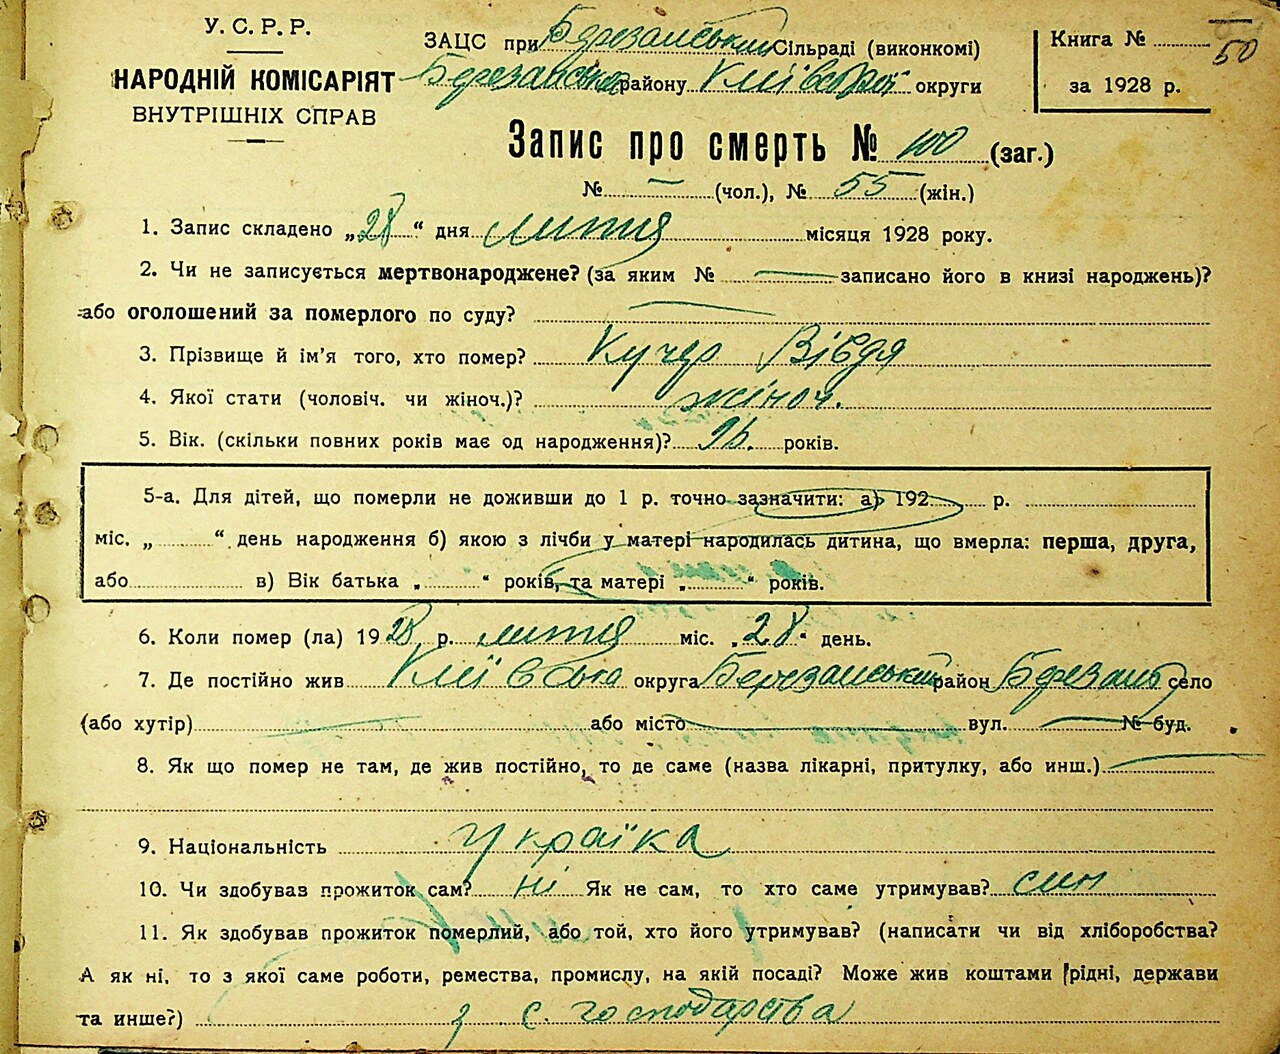 У. С. Р. Р.
НАРОДНІЙ КОМІСАРІЯТ
ВНУТРІШНІХ СПРАВ
ЗАЦС при Березанський Сільраді (виконкомі)
Березанського району Київської округи
Книга № 50
за 1928 р.
Запис про смерть № 100 (заг.)
№ — (чол.), № 55 (жін.)
1. Запис складено „28“ дня лютня місяця 1928 року.
2. Чи не записується мертвонароджене? (за яким № — записано його в книзі народжень)?
або оголошений за померлого по суду? —
3. Прізвище й ім'я того, хто помер? Кучер Вівдя
4. Якої стати (чоловіч. чи жіноч.)? жіноч.
5. Вік. (скільки повних років має од народження)? 96. років.
5-а. Для дітей, що померли не доживши до 1 р. точно зазначити: а) 192 р.
міс. „ “ день народження б) якою з лічби у матері народилась дитина, що вмерла: перша, друга,
або в) Вік батька „ “ років, та матері „ “ років.
6. Коли помер (ла) 1928 р. лютня міс. „28“ день.
7. Де постійно жив Київська округа Березанський район Березань село
(або хутір) — або місто — вул. — № буд.
8. Як що помер не там, де жив постійно, то де саме (назва лікарні, притулку, або инш.) —
9. Національність Україка
10. Чи здобував прожиток сам? ні Як не сам, то хто саме утримував? син
11. Як здобував прожиток померлий, або той, хто його утримував? (написати чи від хліборобства?
А як ні, то з якої саме роботи, ремества, промислу, на якій посаді? Може жив коштами рідні, держави
та инше?) з с. господарства